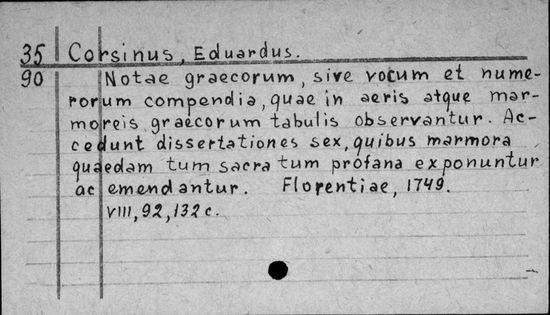 35 Corsinus, Eduardus.
90 Notae graecorum, sive vocum et nume-
rorum compendia, quae in aeris atque mar-
moreis graecorum tabulis observantur. Ac-
cedunt dissertationes sex, quibus marmora
quaedam tum sacra tum profana exponuntur
ac emendantur. Florentiae, 1749.
VIII, 92, 132 c.